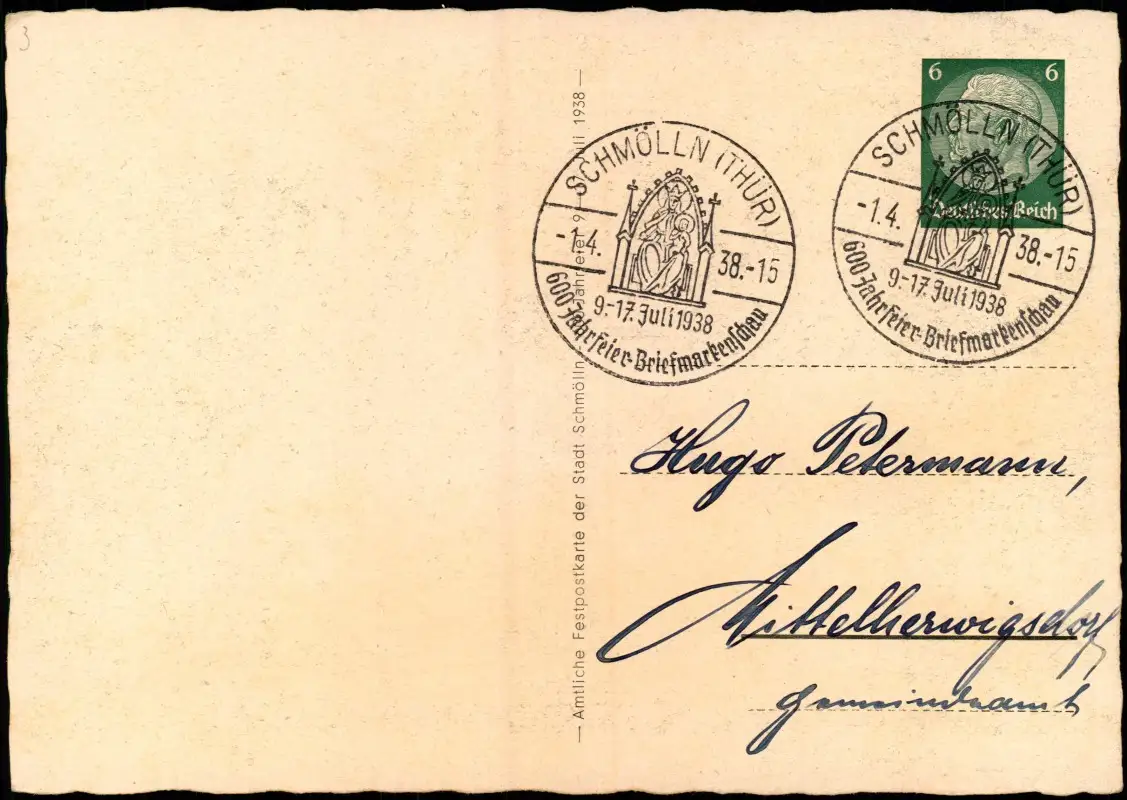 3
6 6
Deutsches Reich
SCHMÖLLN (THÜR)
-1.4. 38.-15
9.-17. Juli 1938
600 Jahrfeier-Briefmarkenschau
SCHMÖLLN (THÜR)
-1.4. 38.-15
9.-17. Juli 1938
600 Jahrfeier-Briefmarkenschau
— Amtliche Festpostkarte der Stadt Schmölln Jahrfeier 9. Juli 1938 —
Hugo Petermann,
Mittelherwigsdorf,
Gemeindeamt